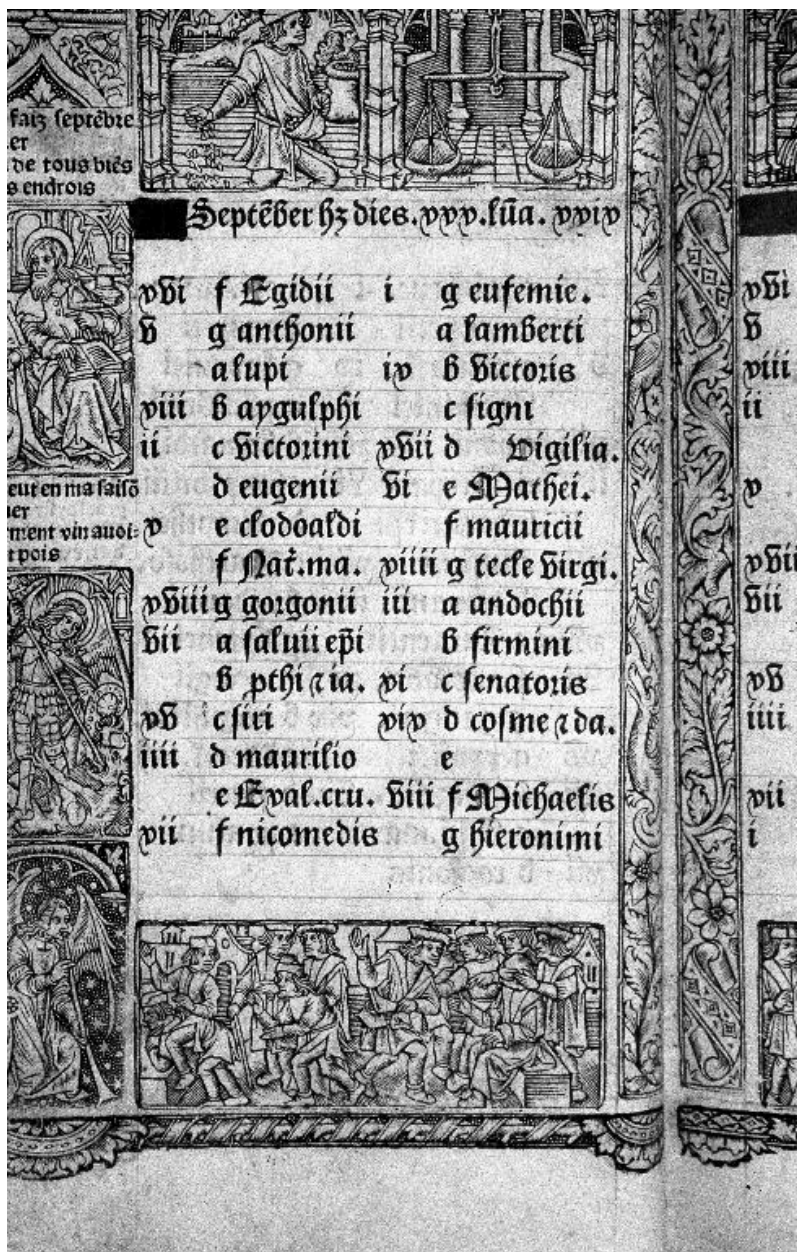 faiz septēbre
er
de tous biēs
s endrois
eut en ma saisō
uer
rment vin auoi-
t pois
Septēber hz dies.xxx.lūa.xxix
xvi f Egidii
v g anthonii
a lupi
xiii b aygulphi
ii c victorini
d eugenii
x e clodoaldi
f Nat.ma.
xviii g gorgonii
vii a saluii ep̄i
b pthi ⁊ ia.
xv c siri
iiii d maurilio
e Exal.cru.
xii f nicomedis
i g eufemie.
a lamberti
ix b victoris
c signi
xvii d Vigilia.
vi e Mathei.
f mauricii
xiiii g tecle virgi.
iii a andochii
b firmini
xi c senatoris
xix d cosme ⁊ da.
e
viii f Michaelis
g hieronimi
xvi
v
xiii
ii
x
xvii
vii
xv
iiii
xii
i